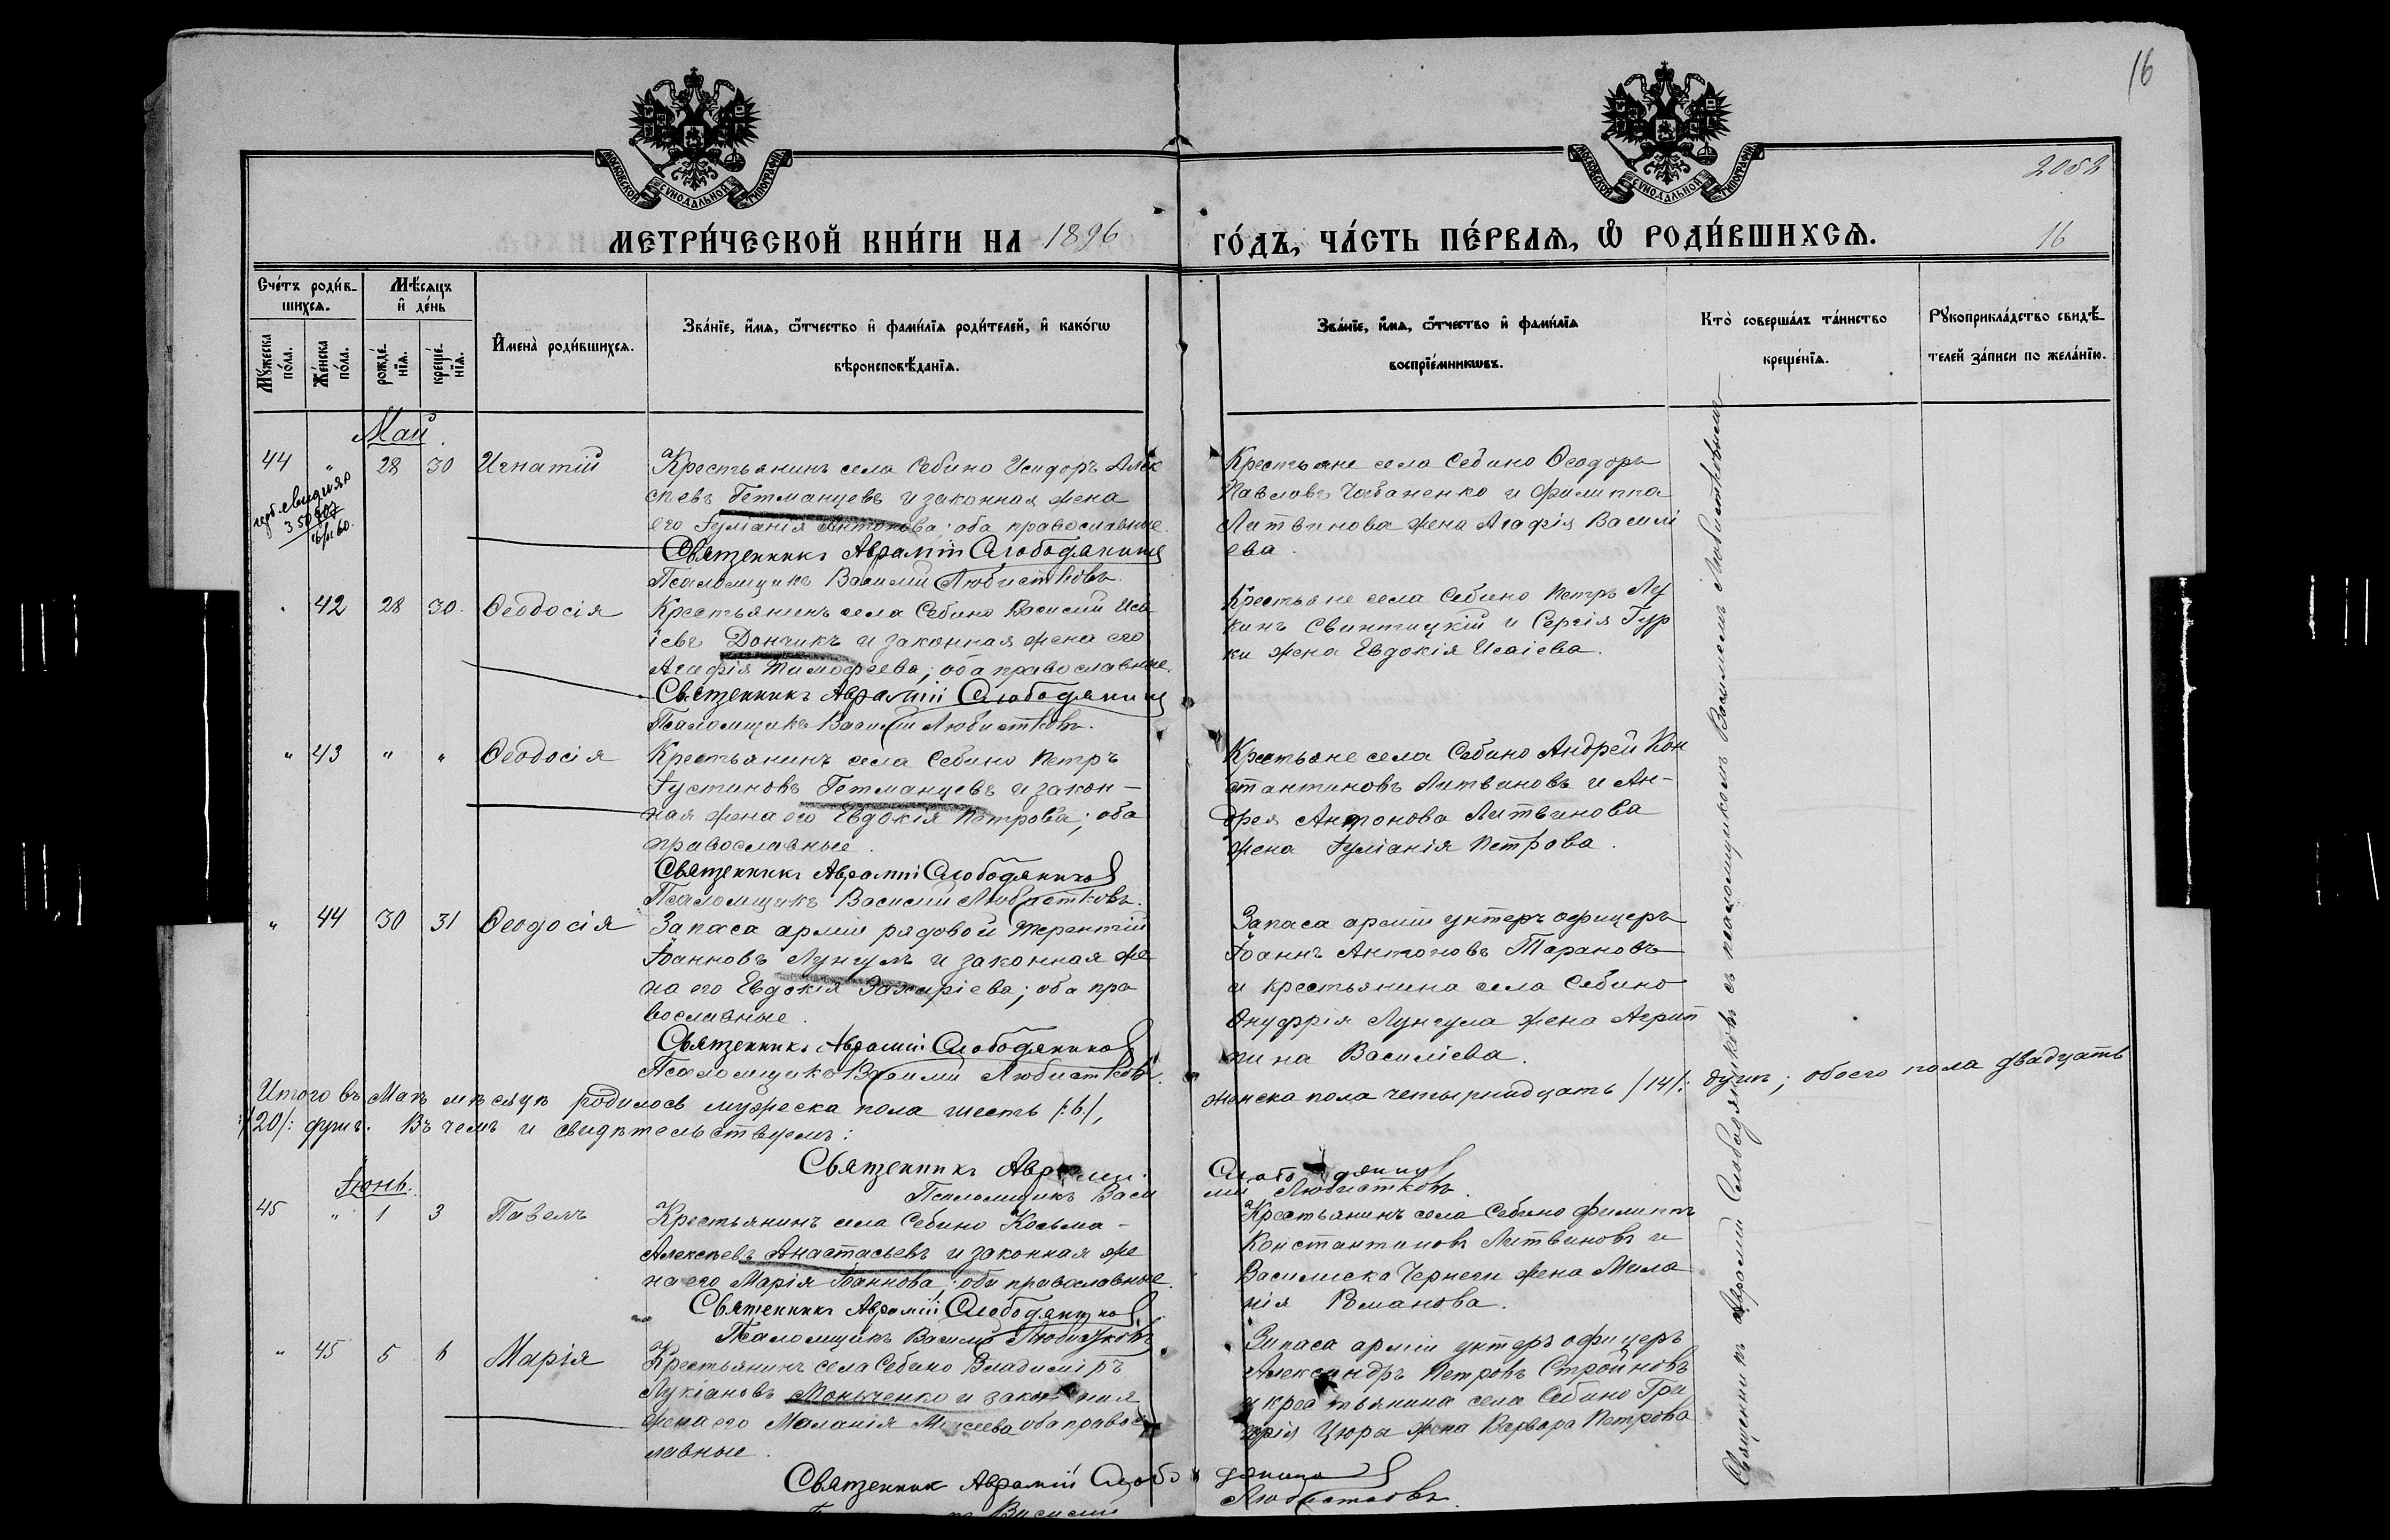 16
МОСКОВСКОЙ СУНОДАЛЬНОЙ ТИПОГРАФІИ
МОСКОВСКОЙ СУНОДАЛЬНОЙ ТИПОГРАФІИ
2052
МЕТРИ́ЧЕСКОЙ КНИ́ГИ НА 1896
ГО́ДЪ, ЧА́СТЬ ПЕ́РВАѦ, Ѡ҆ РОДИ́ВШИХСѦ.
16
Сче́тъ роди́в-
шихсѧ.
Мѣ́сѧцъ
и҆ де́нь
Мꙋ́жеска
по́ла.
Же́нска
по́ла.
рожде́-
нїѧ.
креще́-
нїѧ.
И҆мена̀ роди́вшихсѧ.
Зва́нїе, и҆́мѧ, ѻ҆́тчество и҆ фами́лїѧ роди́телей, и҆ како́гѡ
вѣроисповѣ́данїѧ.
Зва́нїе, и҆́мѧ, ѻ҆́тчество и҆ фами́лїѧ
воспрїе́мникѡвъ.
Кто̀ соверша́лъ та́инство
креще́нїѧ.
Рꙋкоприкла́дство свидѣ́-
телей за́писи по жела́нїю.
Май
44 " 28 30 Игнатій
Крестьянинъ села Себино Исидоръ Алек
сѣевъ Гетманцевъ и законная жена
его Іуліанія Антонова; оба православные.
Священникъ Аврамій Слободяников
Псаломщикъ Василій Любистковъ.
Крестьяне села Себино Ѳеодоръ
Павловъ Чабаненко и Филиппа
Литвинова жена Агафія Василі
ева.
42 28 30. Ѳеодосія
Крестьянинъ села Себино Василій Иса
іевъ Дончикъ и законная жена его
Агафія Тимофеева; оба православные.
Священникъ Аврамій Слободяников
Псаломщикъ Василій Любистковъ.
Крестьяне села Себино Петръ Лу
кинъ Свинтицкій и Сергія Гур
ки жена Евдокія Исаіева.
" 43 " " Ѳеодосія
Крестьянинъ села Себино Петръ
Іустиновъ Гетманцевъ и закон-
ная жена его Евдокія Петрова; оба
православные.
Священникъ Аврамій Слободяников
Псаломщикъ Василій Любистковъ.
Крестьяне села Себино Андрей Кон
стантиновъ Литвиновъ и Ан-
дрея Антонова Литвинова
жена Іуліанія Петрова.
" 44 30 31 Ѳеодосія
Запаса арміи рядовой Терентій
Іоанновъ Лунгулъ и законная же
на его Евдокія Захаріева; оба пра
вославные.
Священникъ Аврамій Слободяников
Псаломщикъ Василій Любистковъ.
Запаса арміи унтеръ офицеръ
Іоаннъ Антоновъ Тарановъ
и крестьянина села Себино
Онуфрія Лунгула жена Агрип
пина Василіева.
Итого въ Маѣ мѣсяцѣ родилось мужеска пола шесть /:6/,
женска пола четырнадцать /14/: душъ; обоего пола двадцать
/20/: душъ. Въ чемъ и свидѣтельствуемъ:
Священникъ Аврамій Слободяников
Псаломщикъ Василій Любистковъ.
Іюнь.
45 " 1 3 Павелъ
Крестьянинъ села Себино Козьма
Алексѣевъ Анастасьевъ и законная же
на его Марія Іоаннова; оба православные.
Священникъ Аврамій Слободяников
Псаломщикъ Василій Любистковъ
Крестьянинъ села Себино Филиппъ
Константиновъ Литвиновъ и
Василиска Чернеги жена Мела
нія Романова.
" 45 5 6 Марія
Крестьянинъ села Себино Владиміръ
Лукіановъ Моньченко и законная
жена его Маланія Моисеева оба право
славные.
Священник Аврамій Слободяников
Василій Любистковъ.
Запаса арміи унтеръ офицеръ
Александръ Петровъ Стройновъ
и крестьянина села Себино Гри
горія Цюра жена Варвара Петрова
Священникъ Аврамій Слободяниковъ съ псаломщикомъ Василіемъ Любистковымъ